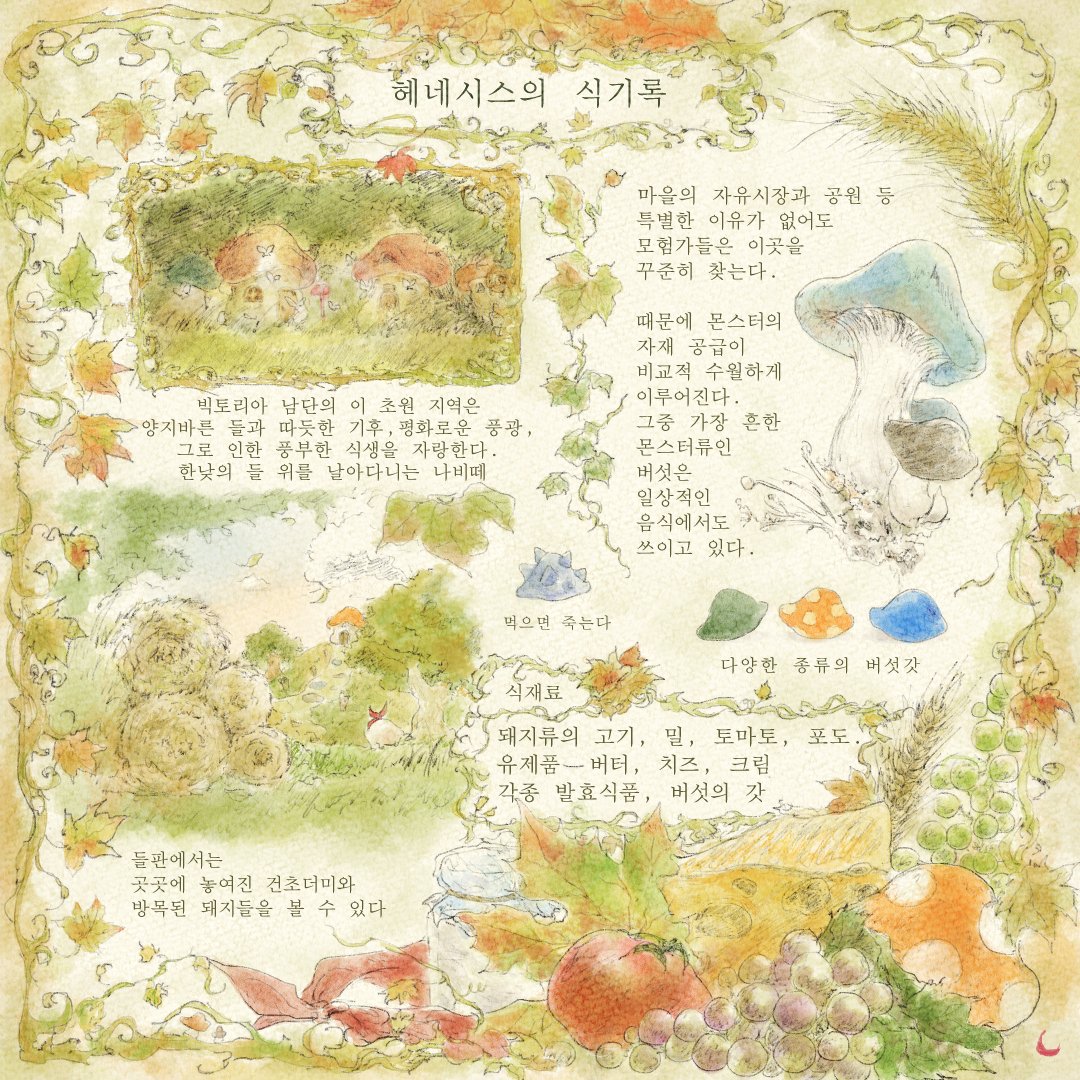 헤네시스의 식기록
빅토리아 남단의 이 초원 지역은
양지바른 들과 따듯한 기후,평화로운 풍광,
그로 인한 풍부한 식생을 자랑한다.
한낮의 들 위를 날아다니는 나비떼
마을의 자유시장과 공원 등
특별한 이유가 없어도
모험가들은 이곳을
꾸준히 찾는다.
때문에 몬스터의
자재 공급이
비교적 수월하게
이루어진다.
그중 가장 흔한
몬스터류인
버섯은
일상적인
음식에서도
쓰이고 있다.
먹으면 죽는다
다양한 종류의 버섯갓
식재료
돼지류의 고기, 밀, 토마토, 포도.
유제품—버터, 치즈, 크림
각종 발효식품, 버섯의 갓
들판에서는
곳곳에 놓여진 건초더미와
방목된 돼지들을 볼 수 있다